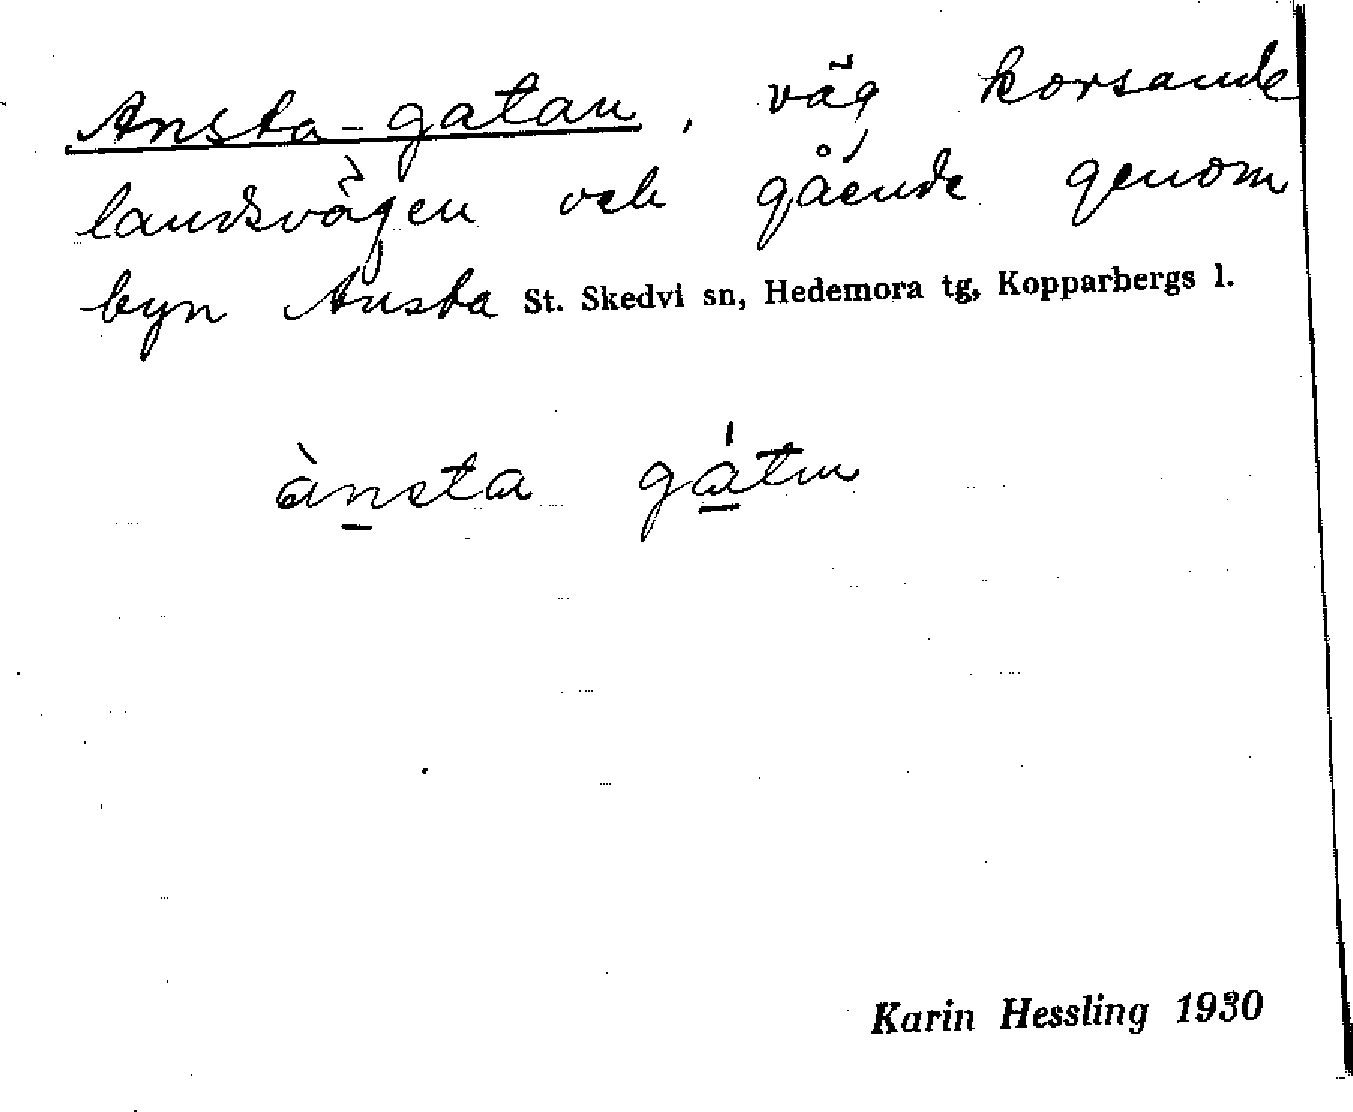 Ansta-gatan, väg korsande
landsvägen och gående genom
byn Ansta St. Skedvi sn, Hedemora tg, Kopparbergs l.
ànsta gátn
Karin Hessling 1930